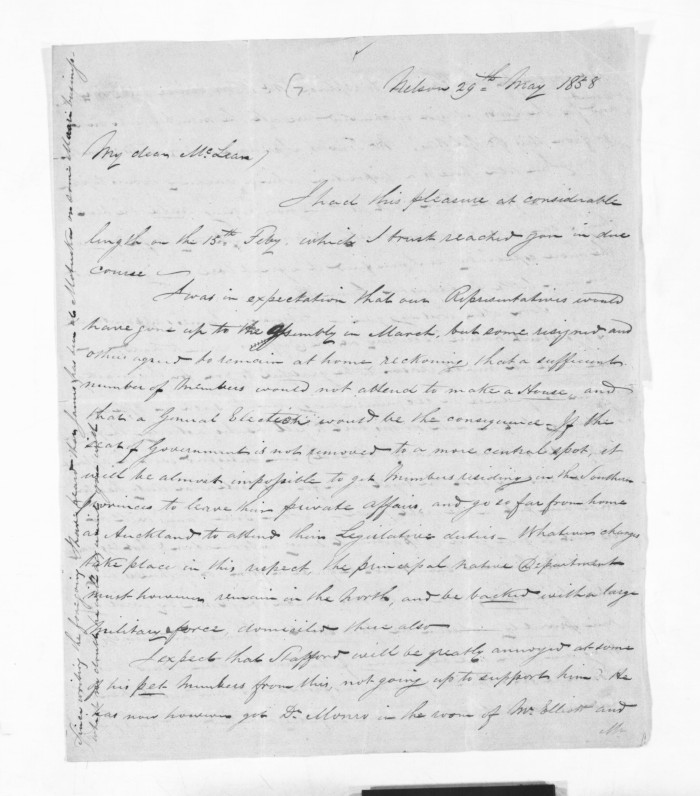 Nelson 29th May 1858
My dear McLean,
I had this pleasure at considerable
length on the 15th Feby. which I trust reached you in due
course.
I was in expectation that our Representatives would
have gone up to the Assembly in March, but some resigned, and
others agreed to remain at home reckoning, that a sufficient
number of Members would not attend to make a House, and
that a General Election would be the consequence. If the
seat of Government is not removed to a more central spot, it
will be almost impossible to get Members residing in the Southern
provinces to leave their private affairs, and go so far from home
as Auckland to attend their Legislative duties - Whatever changes
take place in this respect, the principal native Department
must however remain in the North, and be backed with a large
Military force, domiciled there also
I expect that Stafford will be greatly annoyed at some
of his pet Members from this, not going up to support him. He
has now however got Dr. Monro in the room of Mr. Elliott and
Mr
Since writing the foregoing I have heard that James has been at Motueka on some Maori
which no doubt he will